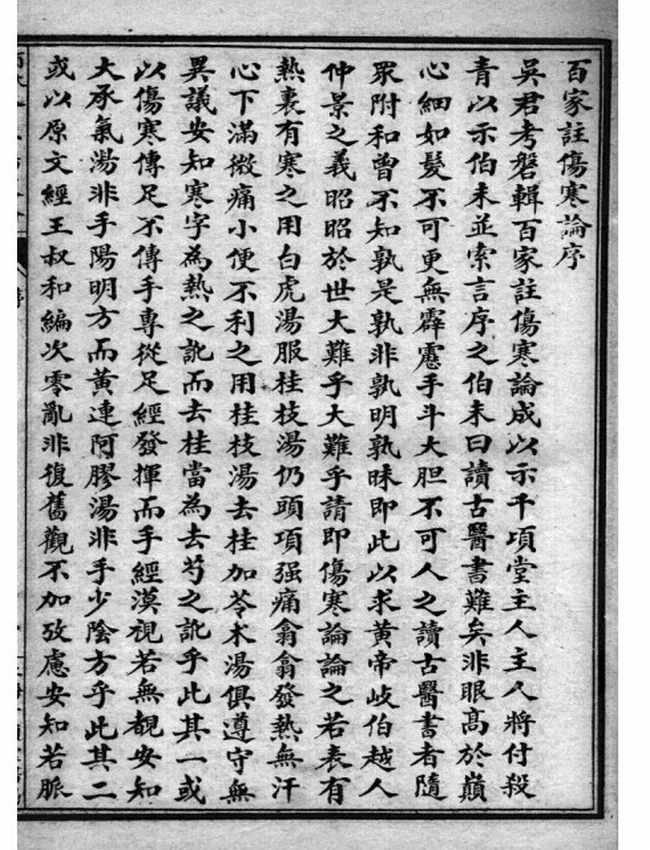 百家註傷寒論序
吳君考磐輯百家註傷寒論成以示千項堂主人主人將付殺
青以示伯未並索言序之伯未曰讀古醫書難矣非眼高於巔
心細如髮不可更無霹靂手斗大胆不可人之讀古醫書者隨
眾附和曾不知孰是孰非孰明孰昧即此以求黃帝岐伯越人
仲景之義昭昭於世大難乎大難乎請即傷寒論論之若表有
熱裏有寒之用白虎湯服桂枝湯仍頭項强痛翕翕發熱無汗
心下滿微痛小便不利之用桂枝湯去桂加苓朮湯俱遵守無
異議安知寒字為熱之訛而去桂當為去芍之訛乎此其一或
以傷寒傳足不傳手專從足經發揮而手經漠視若無覩安知
大承氣湯非手陽明方而黃連阿膠湯非手少陰方乎此其二
或以原文經王叔和編次零亂非復舊觀不加攷慮安知若脈
序